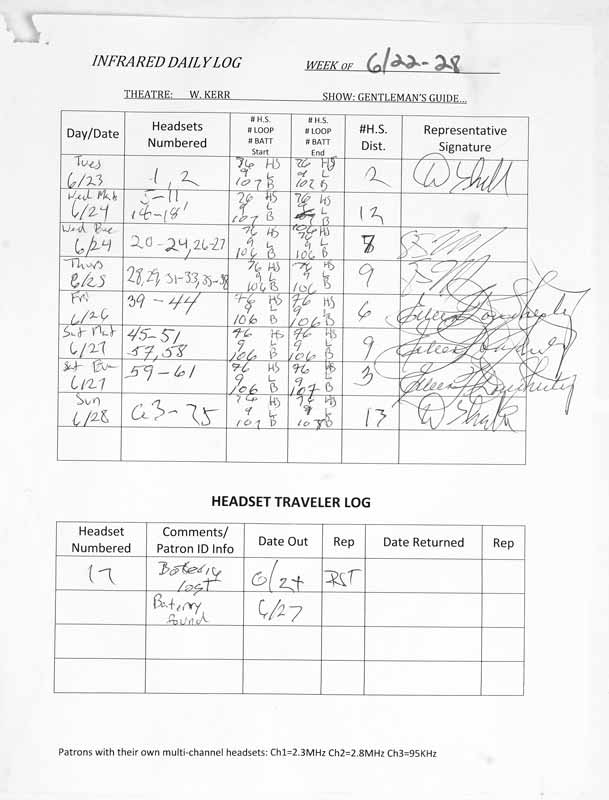 INFRARED DAILY LOG WEEK OF 6/22-28
THEATRE: W. KERR SHOW: GENTLEMAN'S GUIDE...
Day/Date Headsets Numbered # H.S. # LOOP # BATT Start # H.S. # LOOP # BATT End #H.S. Dist. Representative Signature
Tues 6/23 1, 2 76 HS 9 L 107 B 76 HS 9 L 107 B 2
Wed Mat 6/24 5-11 14-18 76 HS 9 L 107 B 76 HS L 106 B 12
Wed Eve 6/24 20-24, 26-27 76 HS 9 L 106 B 76 HS 9 L 106 B
Thurs 6/25 28, 29, 31-33, 35-38 76 HS 9 L 106 B 76 HS 9 L 106 B 9
Fri 6/26 39-44 76 HS 9 L 106 B 76 HS 9 L 106 B 6 Eileen Dougherty
Sat Mat 6/27 45-51 57, 58 76 HS 9 L 106 B 76 HS 9 L 106 B 9 Eileen Dougherty
Sat Eve 6/27 59-61 76 HS 9 L 106 B 76 HS 9 L 107 B 3 Eileen Dougherty
Sun 6/28 63-75 76 HS 9 L 107 B 76 HS 9 L B 13
HEADSET TRAVELER LOG
Headset Numbered Comments/ Patron ID Info Date Out Rep Date Returned Rep
17 Battery lost 6/24 RST
Battery found 6/27
Patrons with their own multi-channel headsets: Ch1=2.3MHz Ch2=2.8MHz Ch3=95KHz